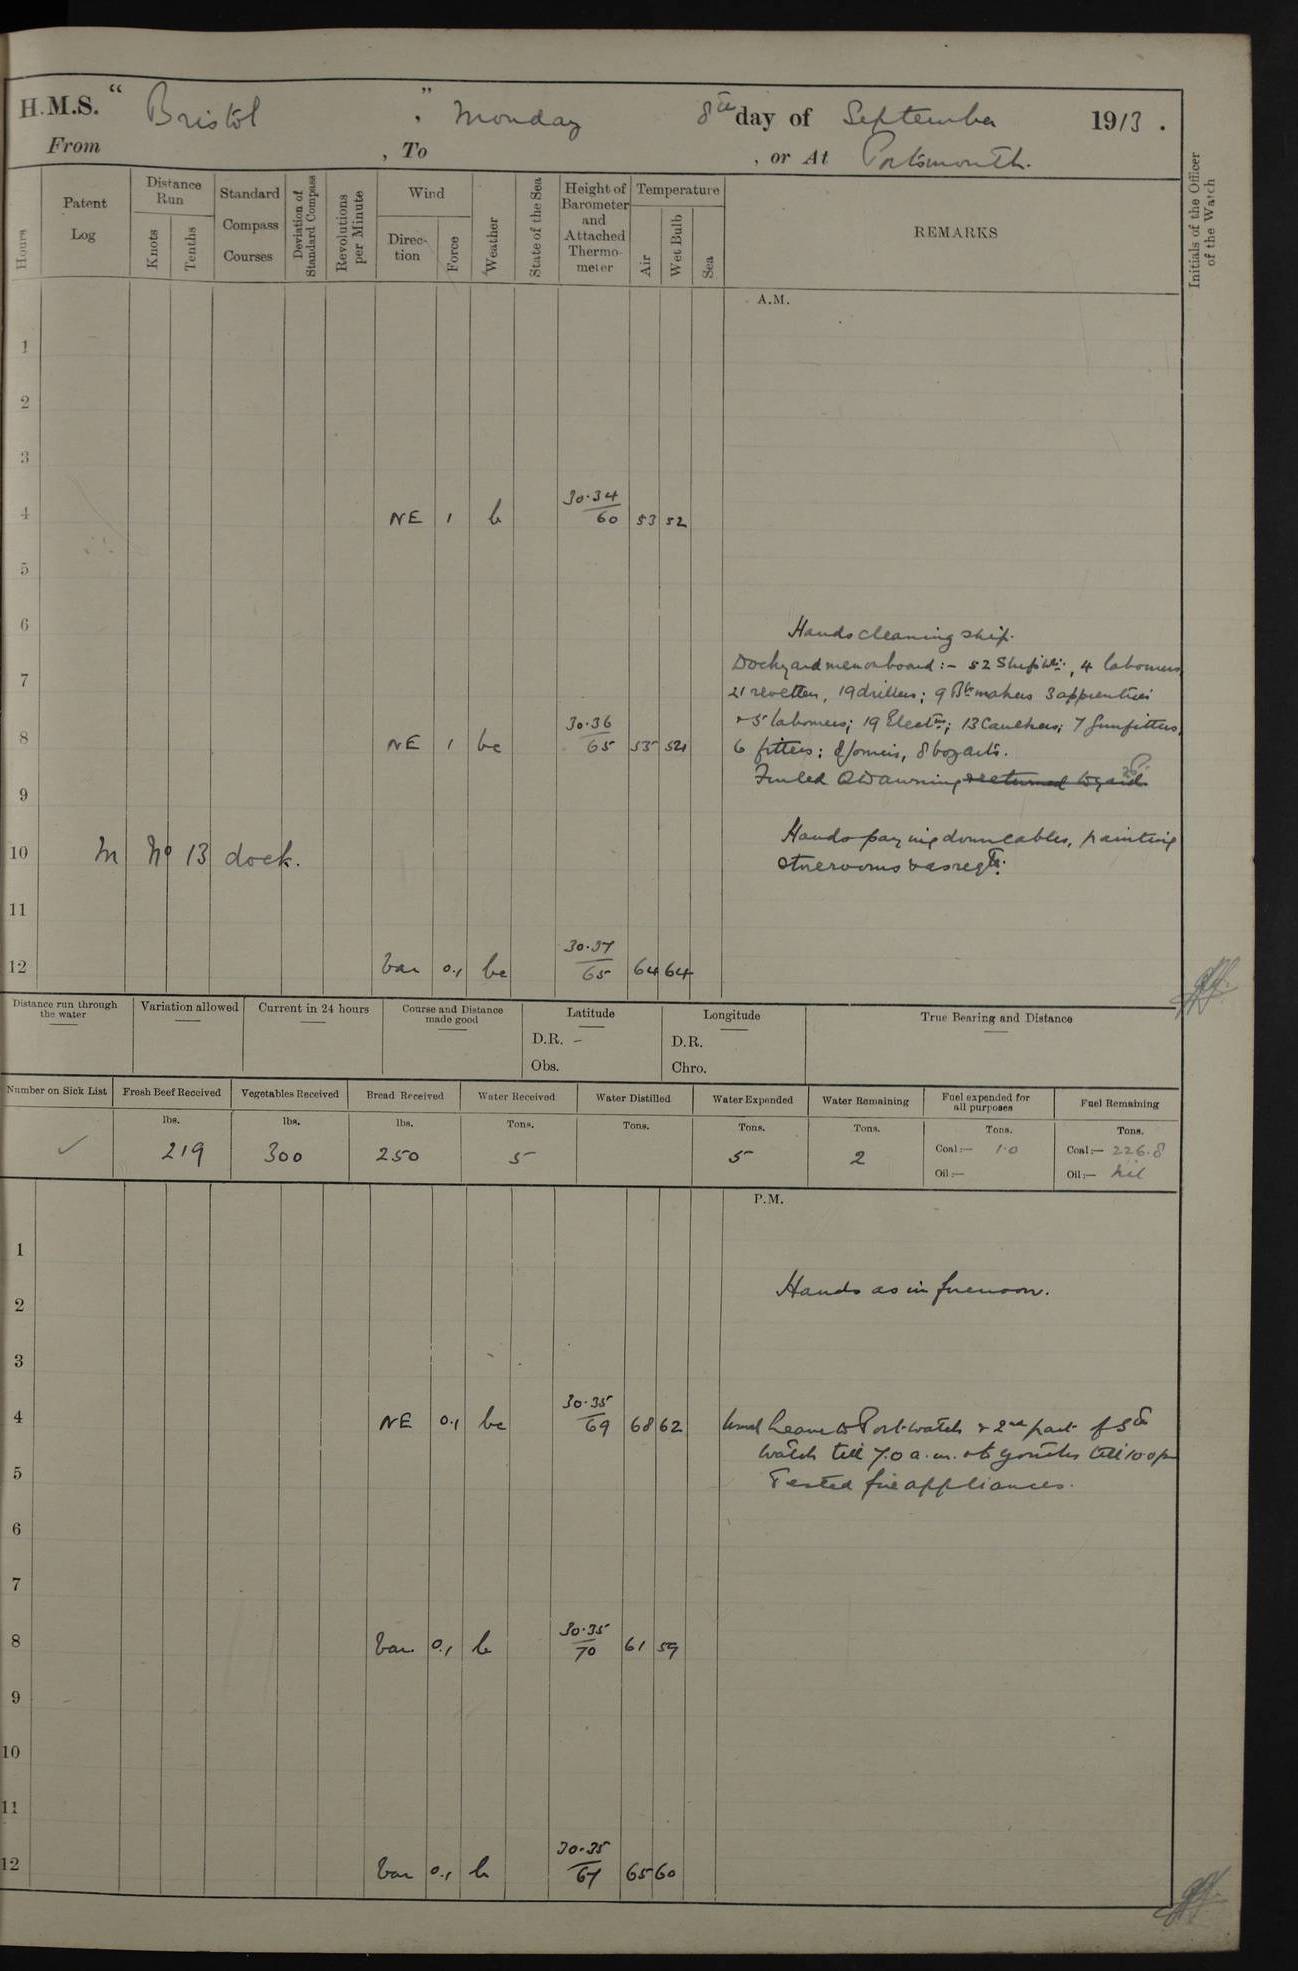 H.M.S. " Bristol ", Monday 8th day of September 1913.
From , To , or At Portsmouth.
Hours
Patent Log
Distance Run
Knots
Tenths
Standard Compass Courses
Deviation of Standard Compass
Revolutions per Minute
Wind
Direction
Force
Weather
State of the Sea
Height of Barometer and Attached Thermometer
Temperature
Air
Wet Bulb
Sea
REMARKS
Initials of the Officer of the Watch
A.M.
1
2
3
4 NE 1 b 30.34/60 53 52
5
6 Hands cleaning ship.
Dockyard men on board:- 52 Shipwts, 4 labourers,
7 21 rivetters, 19 drillers; 9 Br makers 3 apprentices
+ 5 labourers; 19 Electns; 13 Caulkers; 7 Gunfitters,
8 NE 1 bc 30.36/65 53 52 6 fitters; 8 Joiners, 8 bogarts.
Furled QD awning & returned to yard
9
Hands paying down cables, painting
10 In No 13 dock. storerooms & as reqte.
11
12 var 0.1 bc 30.37/65 64 64
Distance run through the water
Variation allowed
Current in 24 hours
Course and Distance made good
Latitude
D.R. -
Obs.
Longitude
D.R.
Chro.
True Bearing and Distance
Number on Sick List
Fresh Beef Received
Vegetables Received
Bread Received
Water Received
Water Distilled
Water Expended
Water Remaining
Fuel expended for all purposes
Fuel Remaining
lbs. lbs. lbs. Tons. Tons. Tons. Tons. Tons. Tons.
✓ 219 300 250 5 5 2 Coal:— 1.0 Coal:— 226.8
Oil:— Oil:— nil
P.M.
1
Hands as in forenoon.
2
3
4 NE 0.1 bc 30.35/69 68 62 Usual Leave to Port watch & 2nd part of Std
watch till 7.0 a.m. & to youths till 10.0 pm
5 Tested fire appliances.
6
7
8 var 0.1 b 30.35/70 61 59
9
10
11
12 var 0.1 b 30.35/67 65 60